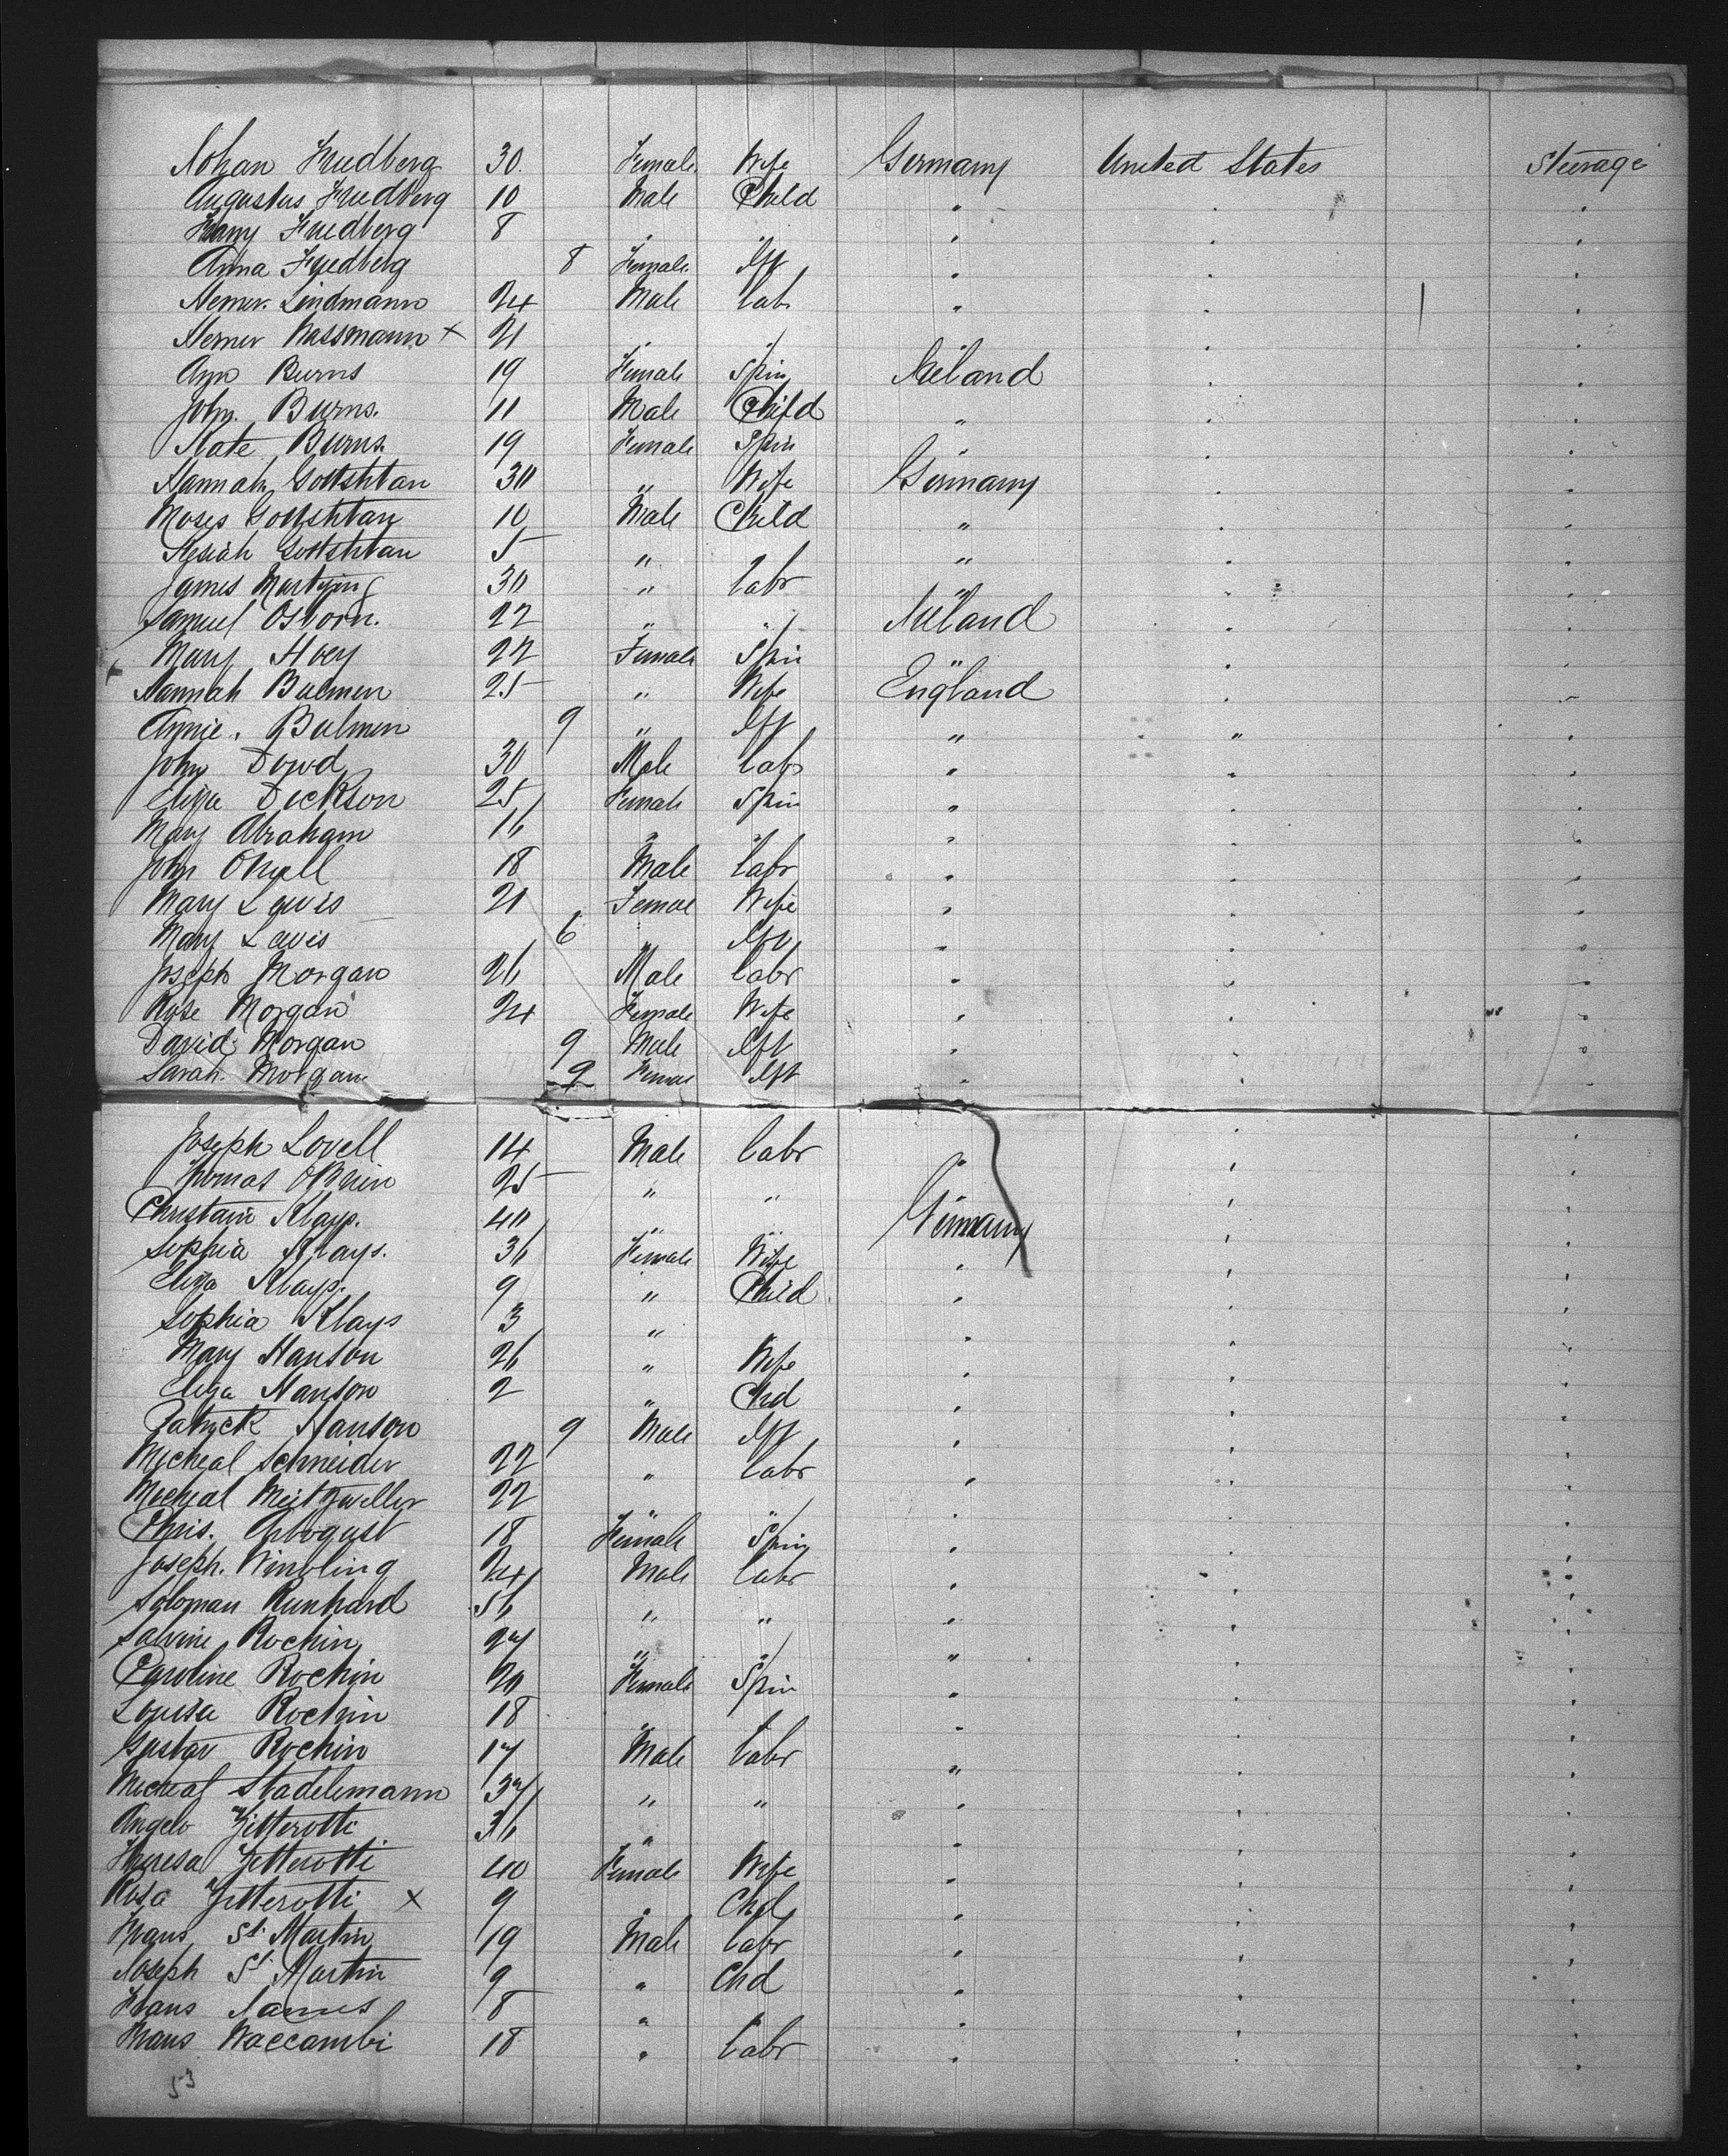 Johan Friedberg 30. Female Wife Germany United States Steerage
Augustus Friedberg 10 Male Child " " "
Friedberg 8 " " " " "
Anna Friedberg 8 Female Ift " " "
Lindmann 24 Male Labr " " "
Wassmann × 21 " " " " "
Ann Burns 19 Female Spin Ireland " "
John. Burns. 11 Male Child " " "
Kate Burns. 19 Female Spin " " "
Hannah Gottshtan 30 " Wife Germany " "
Moses Gottshtan 10 Male Child " " "
Gottshtan 5 " " " "
James 30 " Labr " " "
Samuel Osborn. 22 " " Ireland " "
Mary Hoey 22 Female Spin " " "
Hannah Bulmen 25 " Wife England " "
Annie. Bulmen 9 " Ift " " "
John Dowd 30 Male Labr " " "
Eliza Dickson 25 Female Spin " " "
Mary Abraham 16 " " " " "
John 18 Male Labr " " "
Mary Lewis 21 Femae Wife " " "
Mary Lewis 6 " Ift " " "
Joseph Morgan 26 Male Labr " " "
Rose Morgan 24 Female Wife " " "
David Morgan 9 Male Ift " " "
Sarah. Morgan 9 Femae Ift " " "
Joseph Lovell 14 Male Labr " " "
Thomas OBrien 25 " " " " "
Christain Klays. 40 " " Germany " "
Sophia Klays. 36 Female Wife " " "
Eliza Klays. 9 " Child " " "
Sophia Klays 3 " " " "
Mary Hanson 26 " Wife " " "
Eliza Hanson 2 " Chd " " "
Patrick Hanson 9 Male Ift " " "
Micheal Schneider 22 " Labr " " "
Micheal 22 " " " " "
Chris. Arbogast 18 Female Spin " " "
Joseph. Wimbling 24 Male Labr " " "
Soloman 56 " " " " "
Rochin 27 " " " " "
Caroline Rochin 20 Female Spin " " "
Louisa Rochin 18 " " " "
Gustav Rochin 17 Male Labr " " "
Micheal Stadelemann 37 " " " " "
Angelo Zitterotti 36 " " " "
Theresa Zitterotti 40 Female Wife " " "
Rosa Zitterotti × 9 " Chd " " "
Frans St. Martin 19 Male Labr " " "
Joseph St Martin 9 " Chd " " "
Frans 8 " " " "
Frans Waccambi 18 " Labr " " "
53